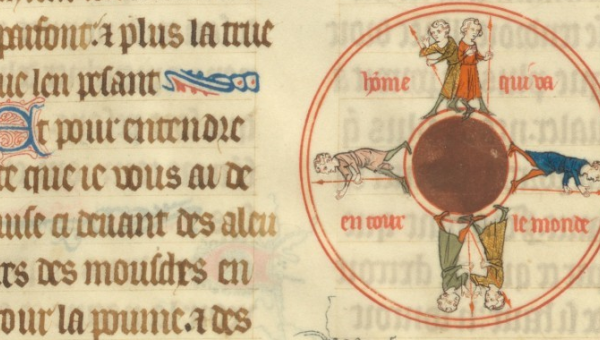 parfont. ⁊ plus la true
ue len pesant
Et pour entendre
te que ie vous ai de
uise ci deuant des aleu
rs des mousches en
tour la poume. ⁊ des
hõme qui va
en tour le monde